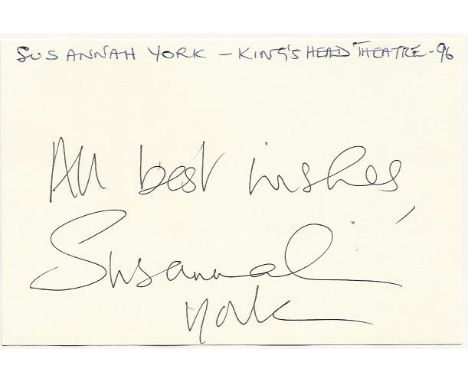 SUSANNAH YORK – KING'S HEAD THEATRE - 96
All best wishes,
Susannah
York